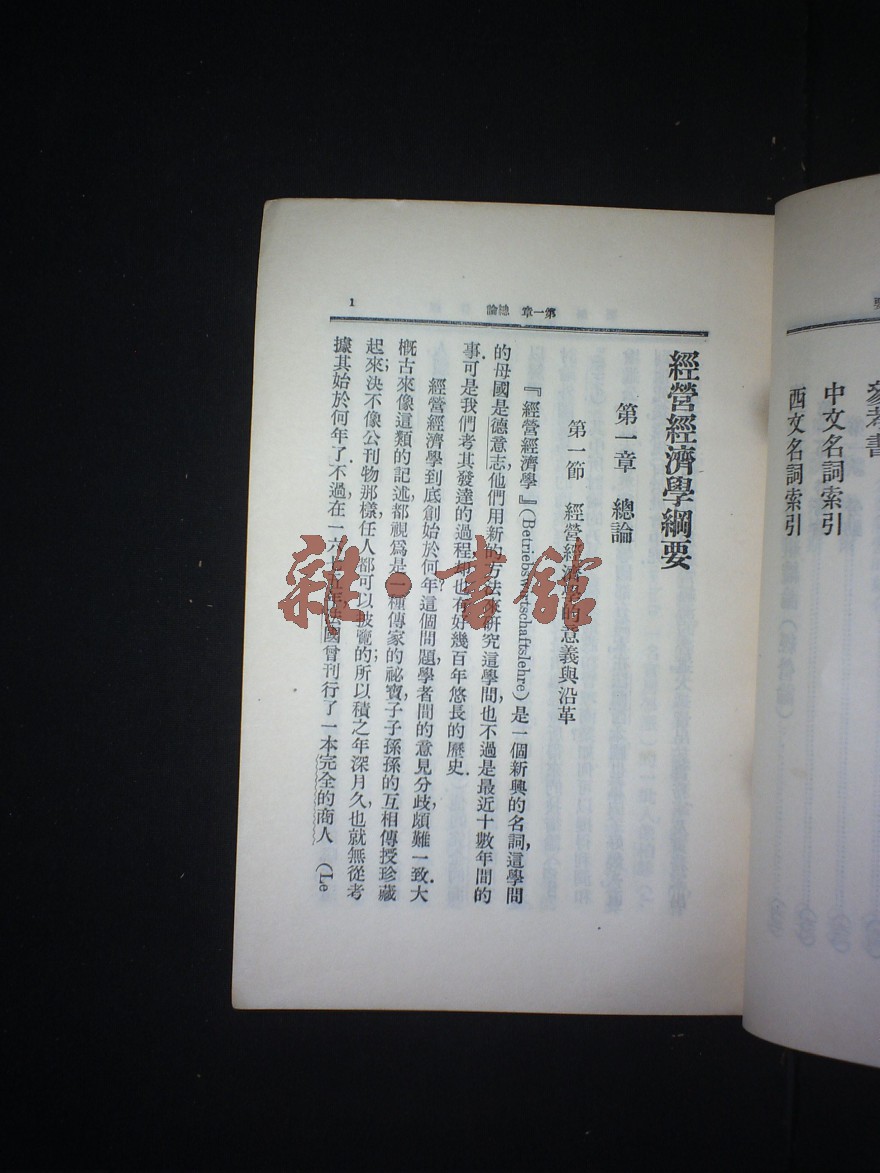 參考書
中文名詞索引
西文名詞索引
第一章 總論
1
經營經濟學綱要
第一章 總論
第一節 經營經濟學的意義與沿革
『經營經濟學』(Betriebswirtschaftslehre)是一個新興的名詞,這學問
的母國是德意志,他們用新的方法來研究這學問,也不過是最近十數年間的
事.可是我們考其發達的過程,却也有好幾百年悠長的歷史.
經營經濟學到底創始於何年?這個問題,學者間的意見分歧,頗難一致.大
概古來像這類的記述,都視爲是一種傳家的祕寶,子子孫孫的互相傳授珍藏
起來;決不像公刊物那樣,任人都可以披覽的;所以積之年深月久,也就無從考
據其始於何年了.不過在一六七五年,法國曾刊行了一本完全的商人 (Le
雜·書館